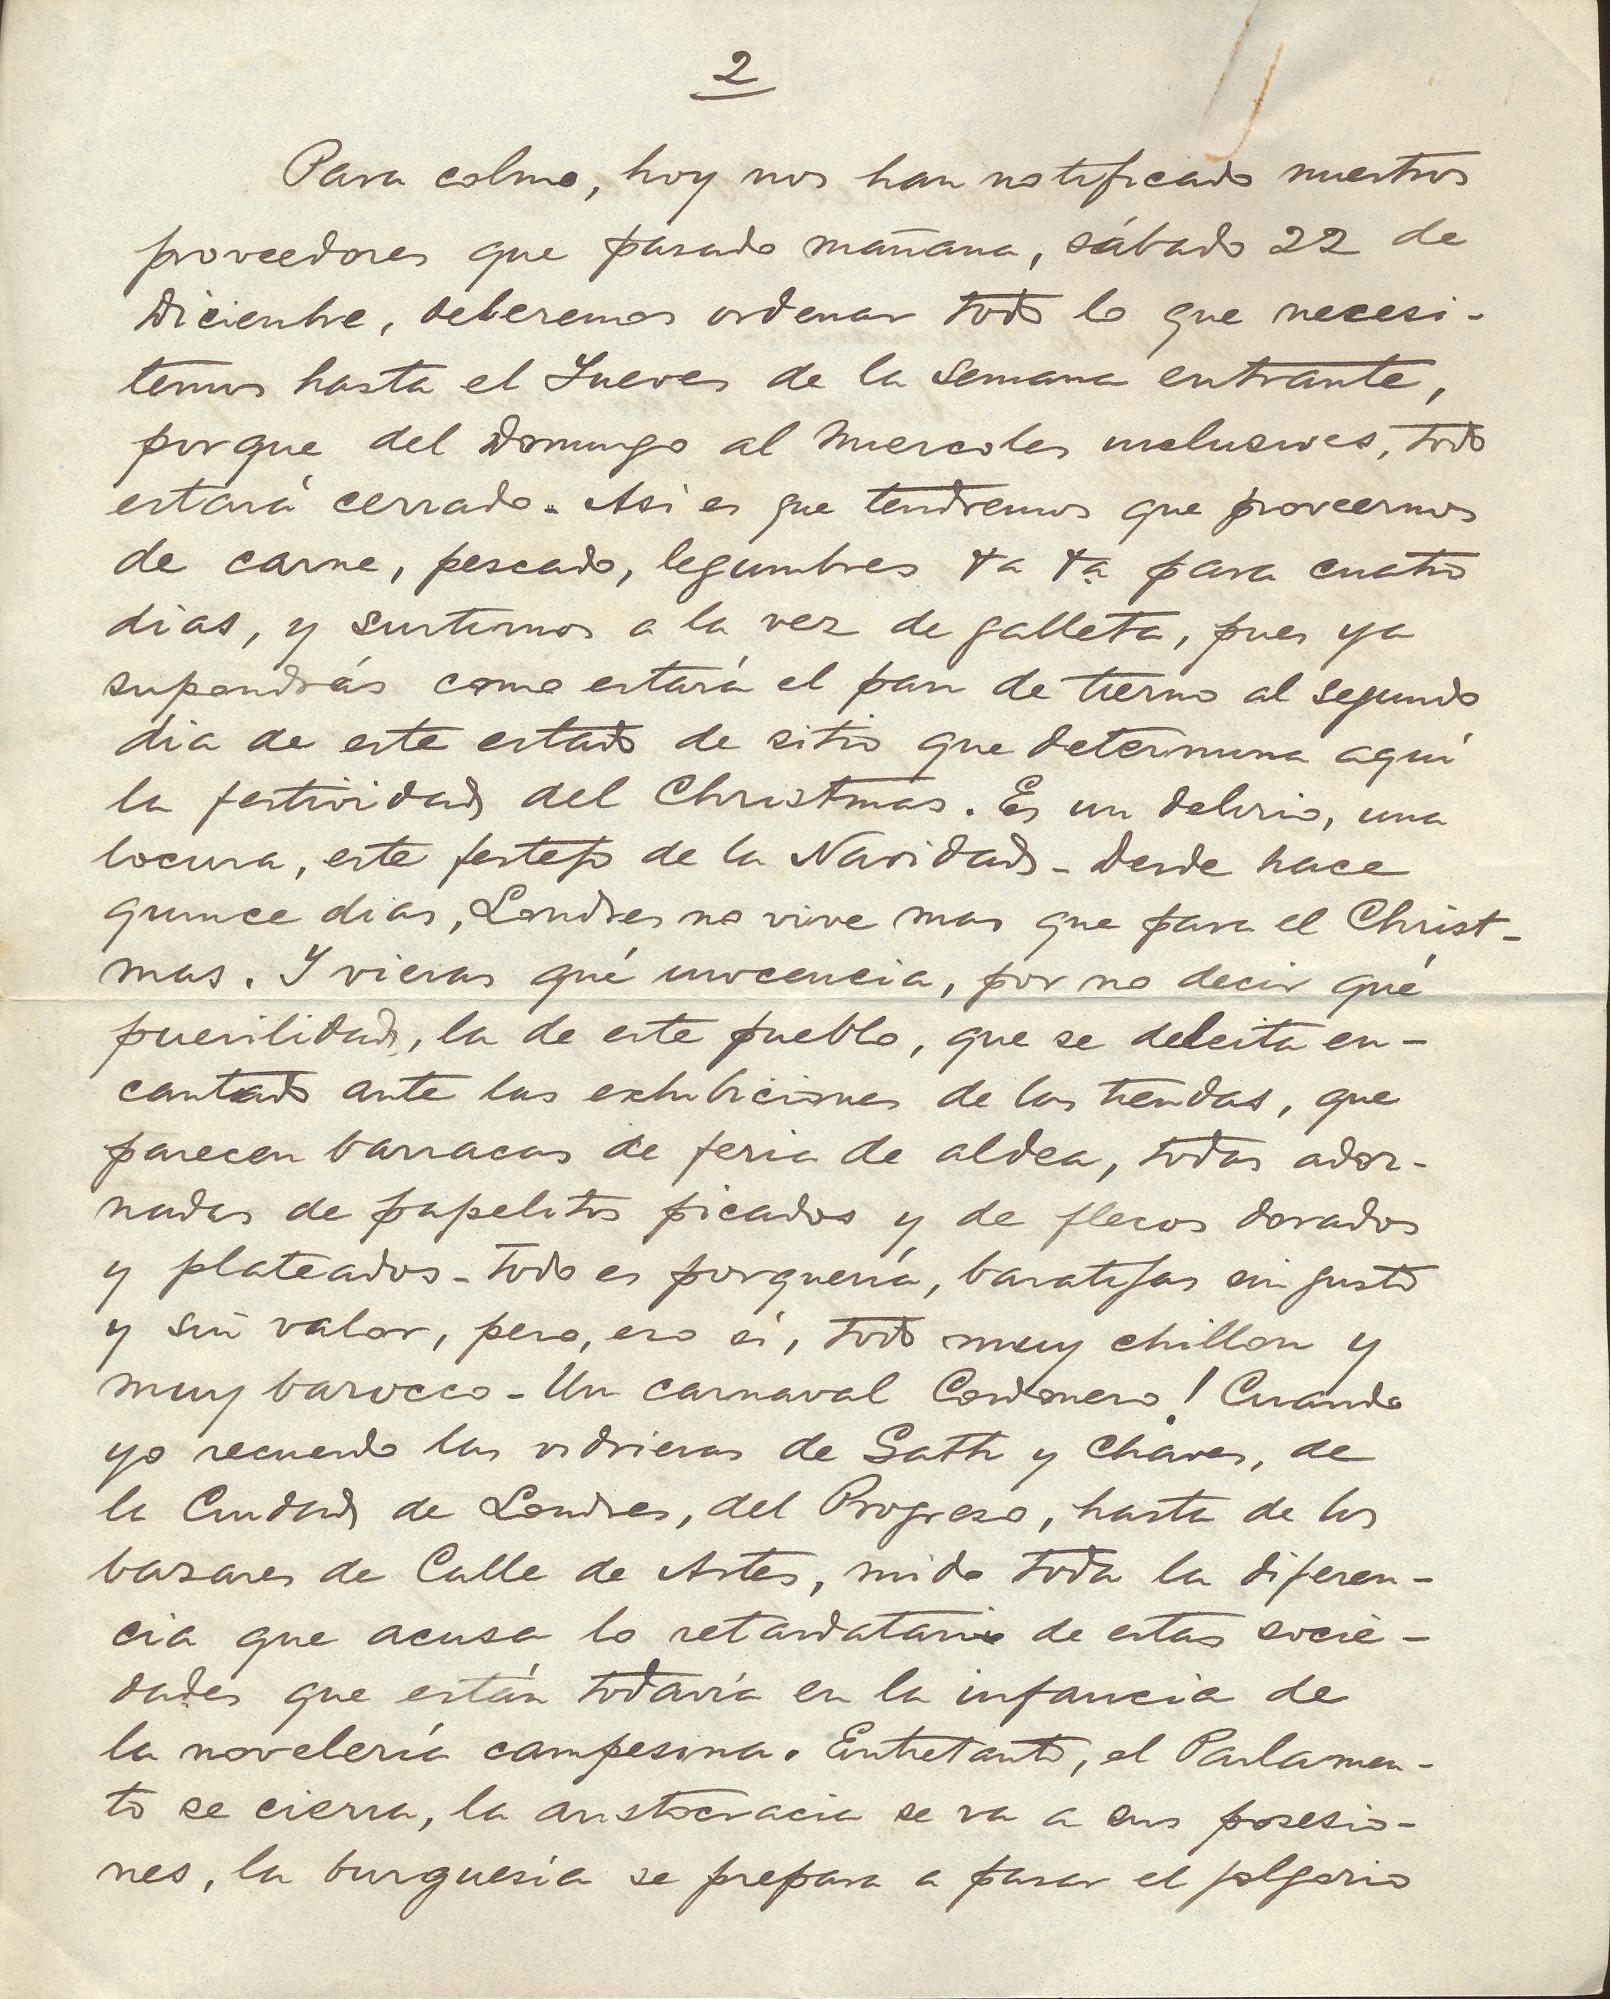 2
Para colmo, hoy nos han notificado nuestros
proveedores que pasado mañana, sábado 22 de
Diciembre, deberemos ordenar todo lo que necesi-
temos hasta el Jueves de la semana entrante,
porque del Domingo al Miercoles inclusives, todo
estará cerrado. Asi es que tendremos que proveernos
de carne, pescado, legumbres &a &a para cuatro
dias, y surtirnos a la vez de galleta, pues ya
supondrás como estará el pan de tierno al segundo
dia de este estado de sitio que determina aquí
la festividad del Christmas. Es un delirio, una
locura, este festejo de la Navidad - Desde hace
quince dias, Londres no vive mas que para el Christ-
mas. Y vieras qué inocencia, por no decir qué
puerilidad, la de este pueblo, que se deleita en-
cantado ante las exhibiciones de las tiendas, que
parecen barracas de feria de aldea, todas ador-
nadas de papelitos picados y de flecos dorados
y plateados - Todo es porquería, baratijas sin gusto
y sin valor, pero, eso si, todo muy chillon y
muy barocco - Un carnaval Cordonero! Cuando
yo recuerdo las vidrieras de Gath y Chaves, de
la Ciudad de Londres, del Progreso, hasta de los
bazares de Calle de Artes, mido toda la diferen-
cia que acusa lo retardatario de estas socie-
dades que están todavía en la infancia de
la novelería campesina. Entretanto, el Parlamen-
to se cierra, la aristocracia se va a sus posesio-
nes, la burguesia se prepara a pasar el jolgorio